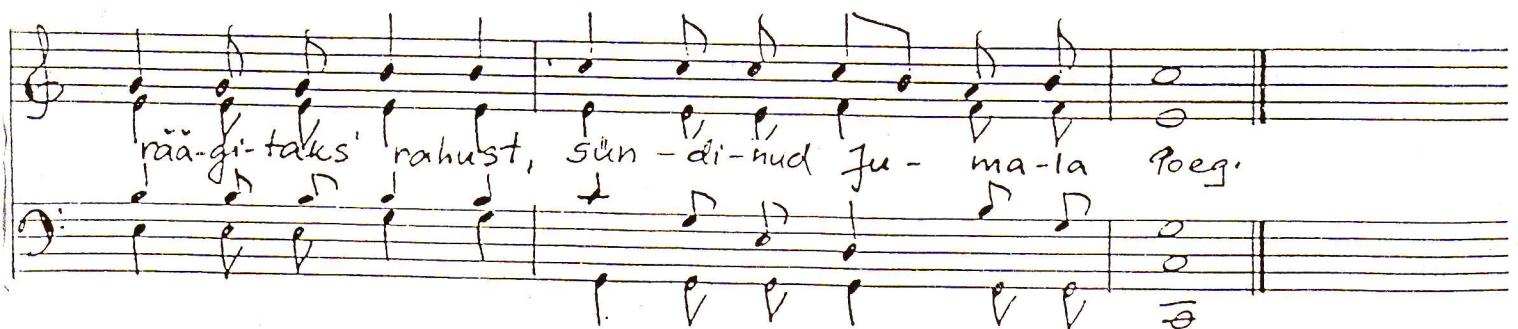 rää-gi-taks rahust, sün-di-nud Ju-ma-la Poeg.